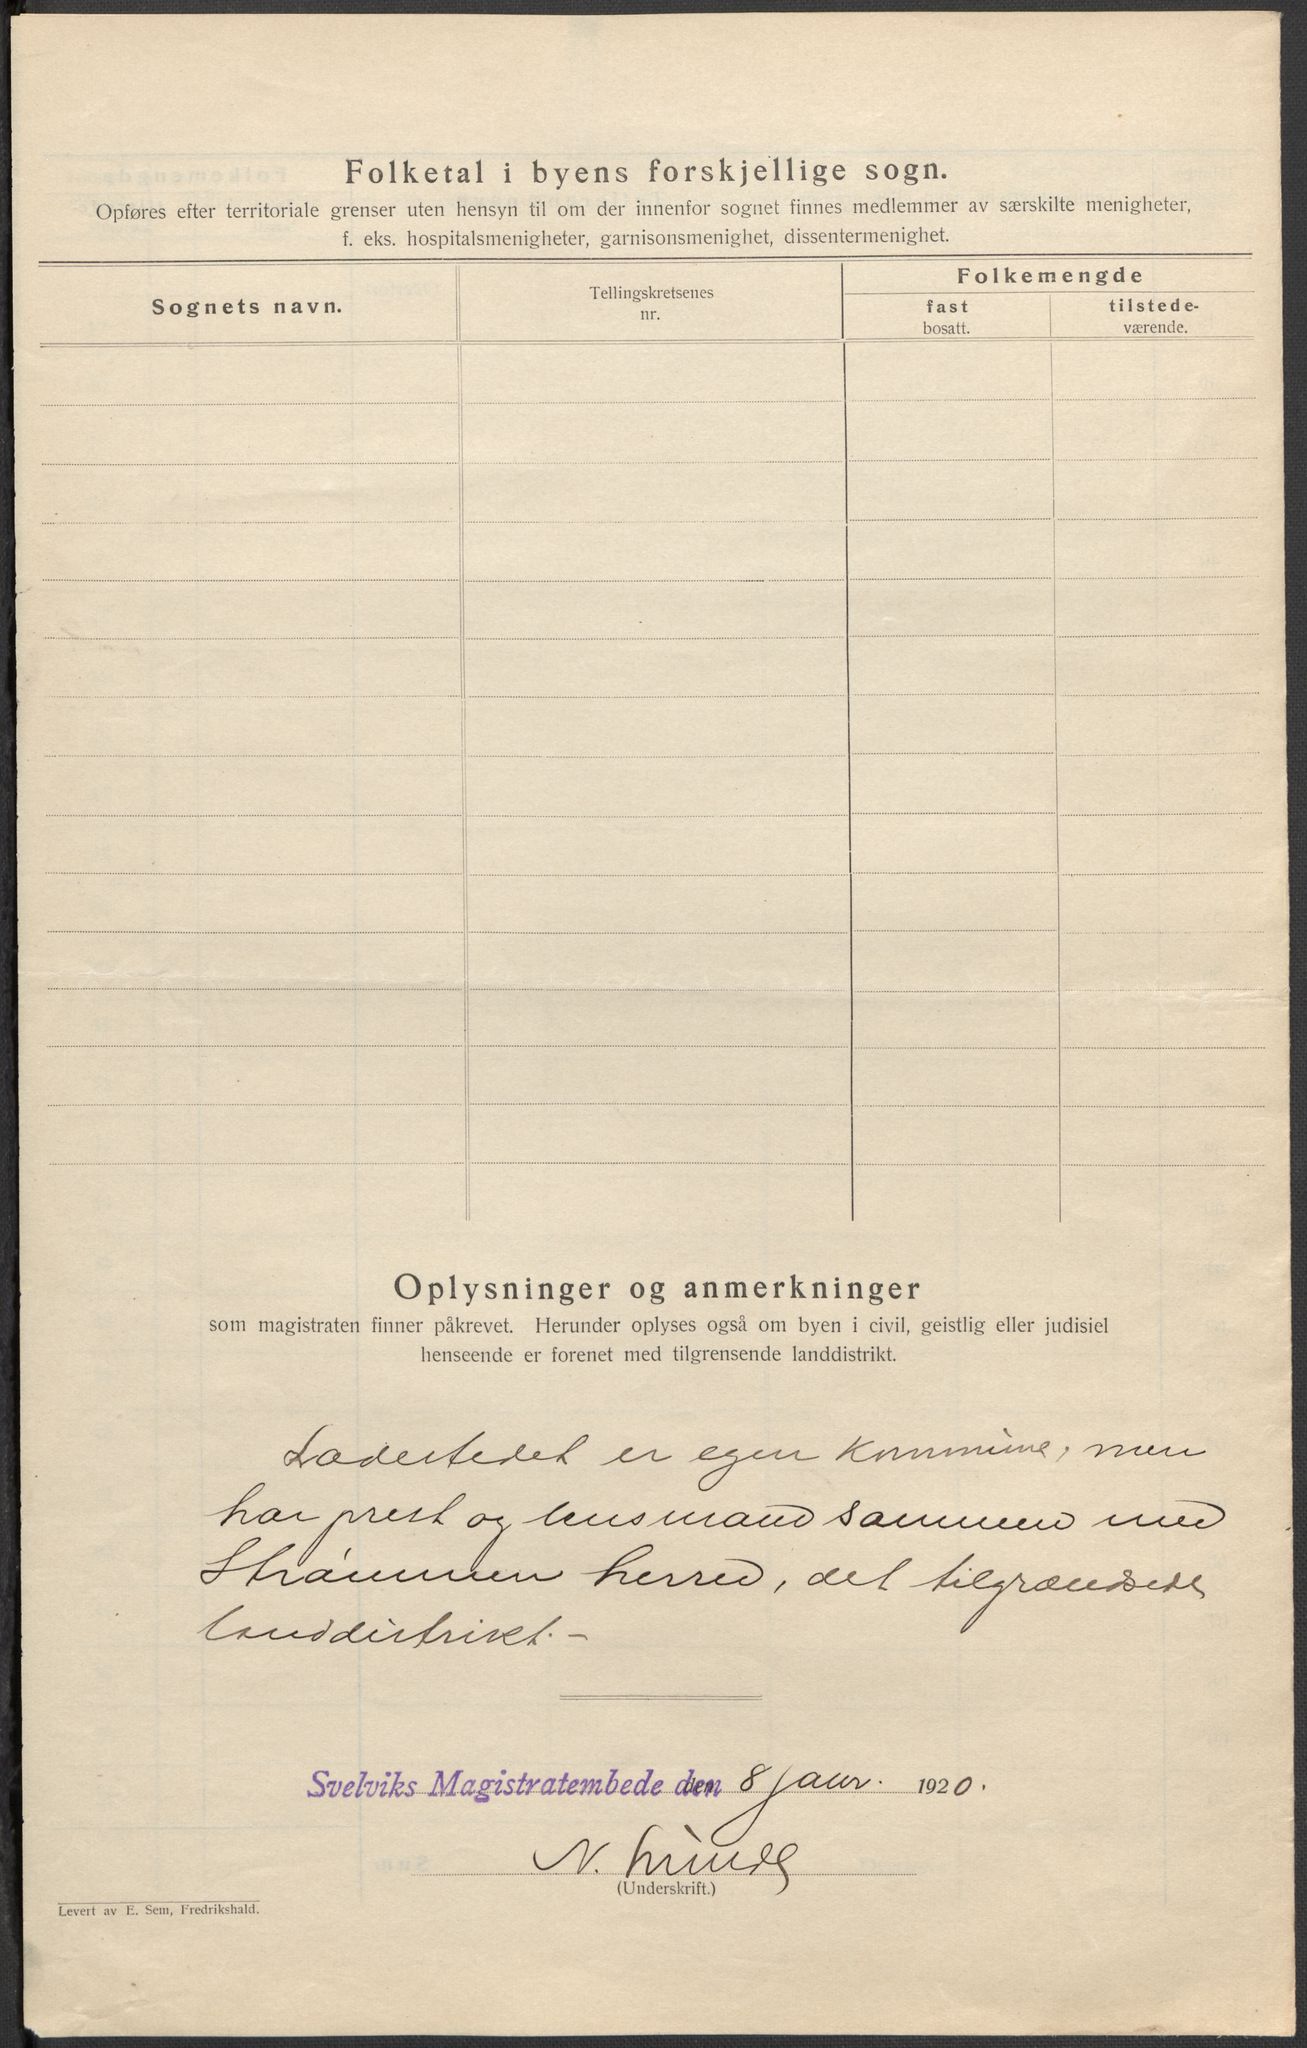 Folketal i byens forskjellige sogn.
Opføres efter territoriale grenser uten hensyn til om der innenfor sognet finnes medlemmer av særskilte menigheter,
f. eks. hospitalsmenigheter, garnisonsmenighet, dissentermenighet.
Sognets navn.
Tellingskretsenes
nr.
Folkemengde
fast
bosatt.
tilstede-
værende.
Oplysninger og anmerkninger
som magistraten finner påkrevet. Herunder oplyses også om byen i civil, geistlig eller judisiel
henseende er forenet med tilgrensende landdistrikt.
Ladestedet er egen kommune, men
har prest og lensmand sammen med
Strømmen herred, det tilgrændsede
landdistrikt. –
Svelviks Magistratembede den 8 janr. 1920.
N.
(Underskrift.)
Levert av E. Sem, Fredrikshald.